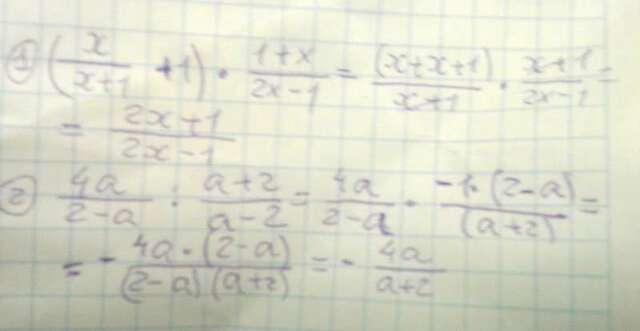 1) (x/(x+1) + 1) · (1+x)/(2x-1) = (x+x+1)/(x+1) · (x+1)/(2x-1) =
= (2x+1)/(2x-1)
2) 4a/(2-a) : (a+2)/(a-2) = 4a/(2-a) · (-1·(2-a))/((a+2)) =
= - (4a·(2-a))/((2-a)(a+2)) = - 4a/(a+2)